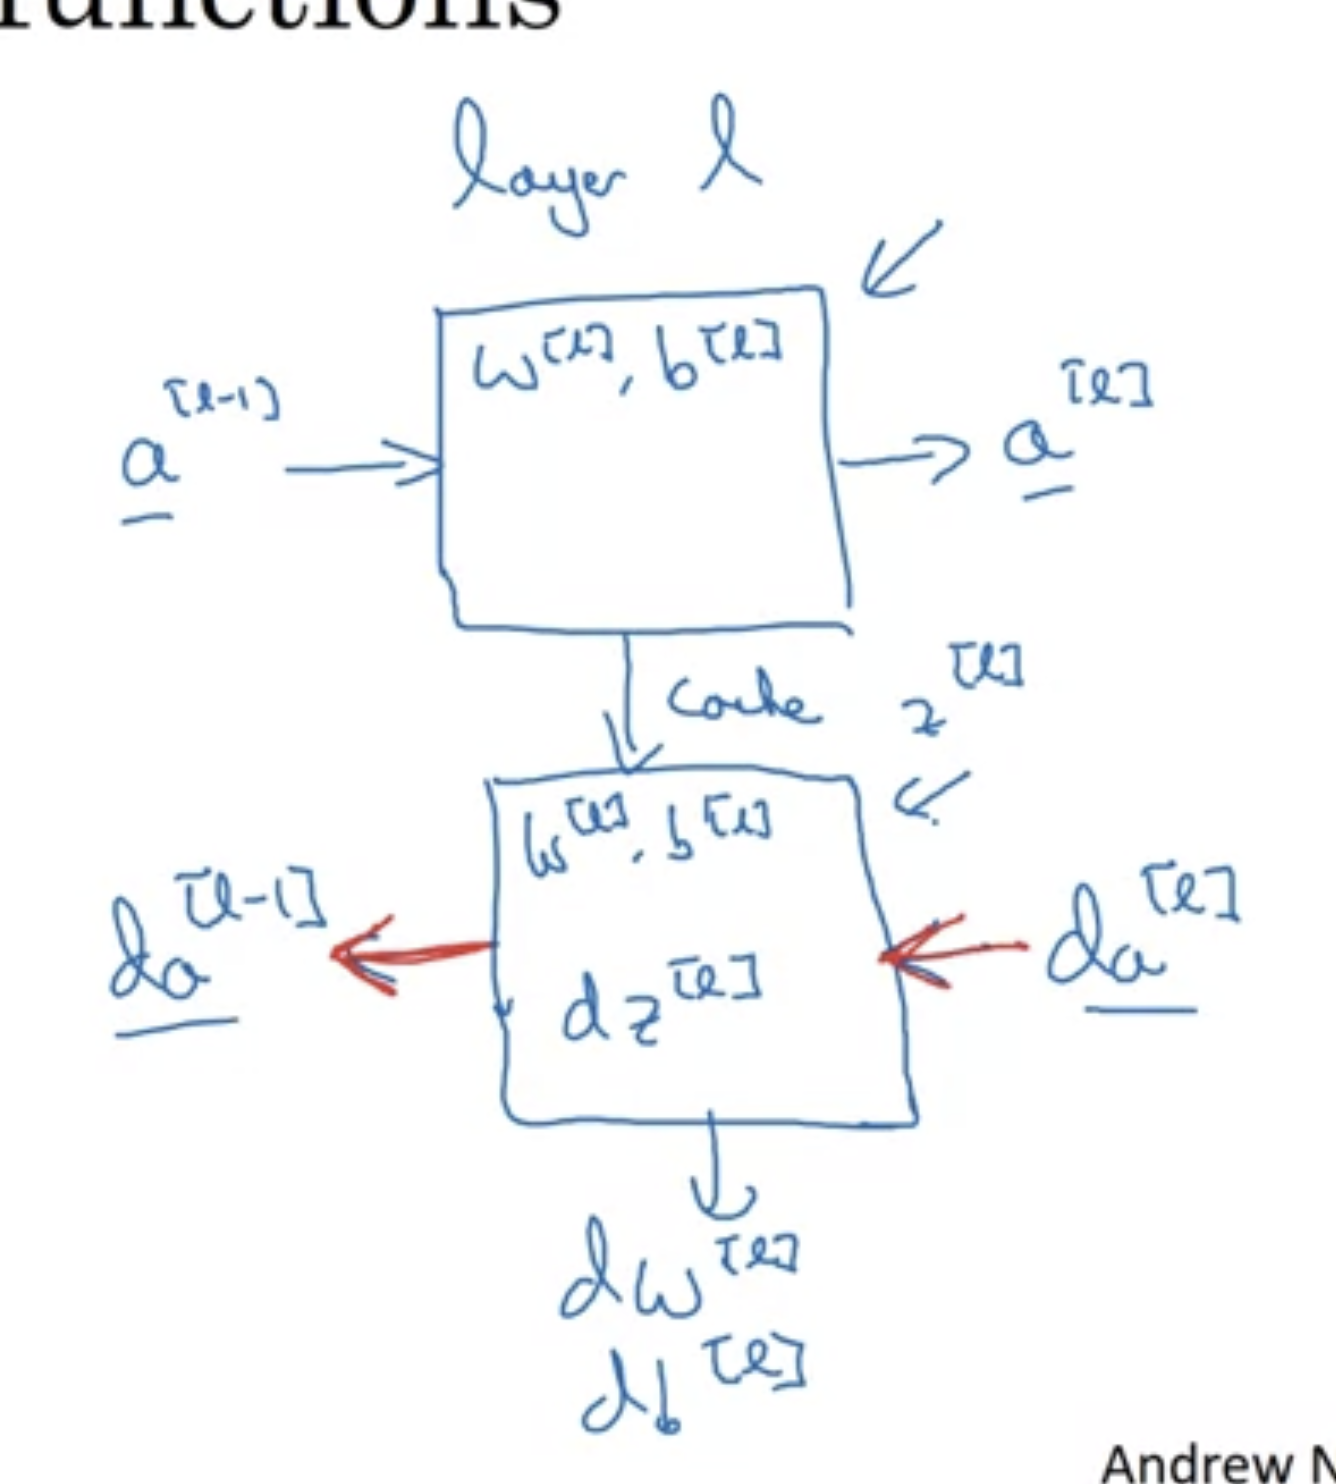 functions
layer l
W^[l], b^[l]
a^[l-1]
a^[l]
cache z^[l]
W^[l], b^[l]
da^[l-1]
da^[l]
dz^[l]
dW^[l]
db^[l]
Andrew N